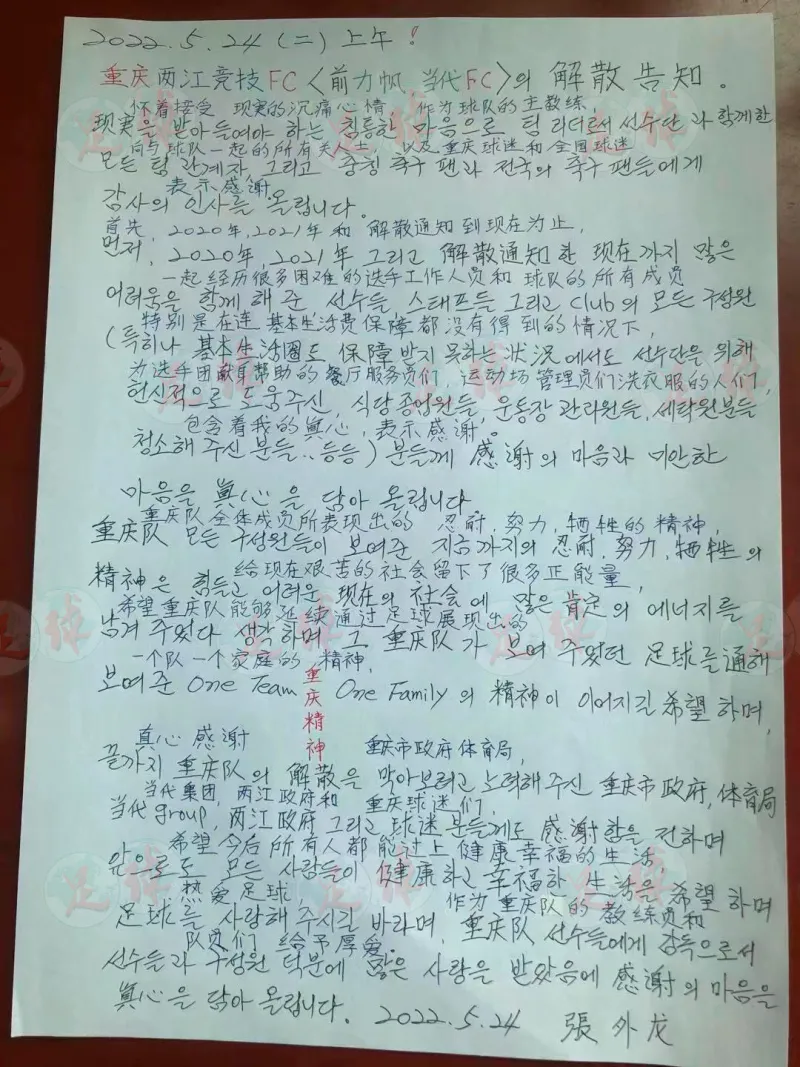 2022.5.24 (二) 上午!
重庆 两江竞技FC〈前力帆, 当代FC〉의 解散告知.
怀着接受 现实的沉痛心情 作为球队的主教练,
现实을 받아들여야 하는 침통한 마음으로 팀 리더로서 선수단과 함께한
向与球队一起的所有关人士, 以及重庆球迷和全国球迷
모든 팀 관계자, 그리고 충칭 축구 팬과 전국의 축구 팬들에게
表示感谢
감사의 인사를 올립니다.
首先, 2020年, 2021年 和 解散通知 到现在为止,
먼저, 2020年, 2021年 그리고 解散通知 한 现在까지 많은
一起经历很多困难的选手工作人员和 球队的所有成员
어려움을 함께 해 준 선수들, 스태프들 그리고 Club의 모든 구성원
特别是在连 基本生活费保障都没有得到的情况下,
(특히나 基本生活圈도 保障받지 못하는 状况에서도 선수단을 위해
为选手团献身帮助的餐厅服务员们, 运动场管理员们洗衣服的人们,
헌신적으로 도움주신, 식당종업원들, 운동장 관리원들, 세탁원분들
包含着我的真心, 表示感谢。
청소해 주신 분들.. 등등) 분들께 感谢의 마음과 미안한
마음을 真心을 담아 올립니다.
重庆队全体成员所表现出的 忍耐, 努力, 牺牲的精神,
重庆队 모든 구성원들이 보여준 지금까지의 忍耐, 努力, 牺牲의
给现在艰苦的社会留下了很多正能量,
精神은 힘들고 어려운 现在의 社会에 많은 肯定의 에너지를
希望重庆队能够延续通过足球展现出的
남겨 주었다 생각하며 그 重庆队가 보여 주었던 足球를 通해
一个队一个家庭的 精神.
보여준 One Team 重庆精神 One Family의 精神이 이어지길 希望하며,
真心感谢 重庆市政府体育局,
끝까지 重庆队의 解散을 막아보려고 노력해 주신 重庆市政府, 体育局
当代集团, 两江政府和 重庆球迷们,
当代group, 两江政府 그리고 球迷 분들께도 感谢함을 전하며
希望今后所有人都能过上 健康幸福的生活,
앞으로도 모든 사람들이 健康하고 幸福한 生活을 希望하며
热爱足球, 作为重庆队的教练员和
足球를 사랑해 주시길 바라며, 重庆队 선수들에게 감독으로서
队员们 给予厚爱。
선수들과 구성원 덕분에 많은 사랑을 받았음에 感谢의 마음을
真心을 담아 올립니다. 2022.5.24 張外龙